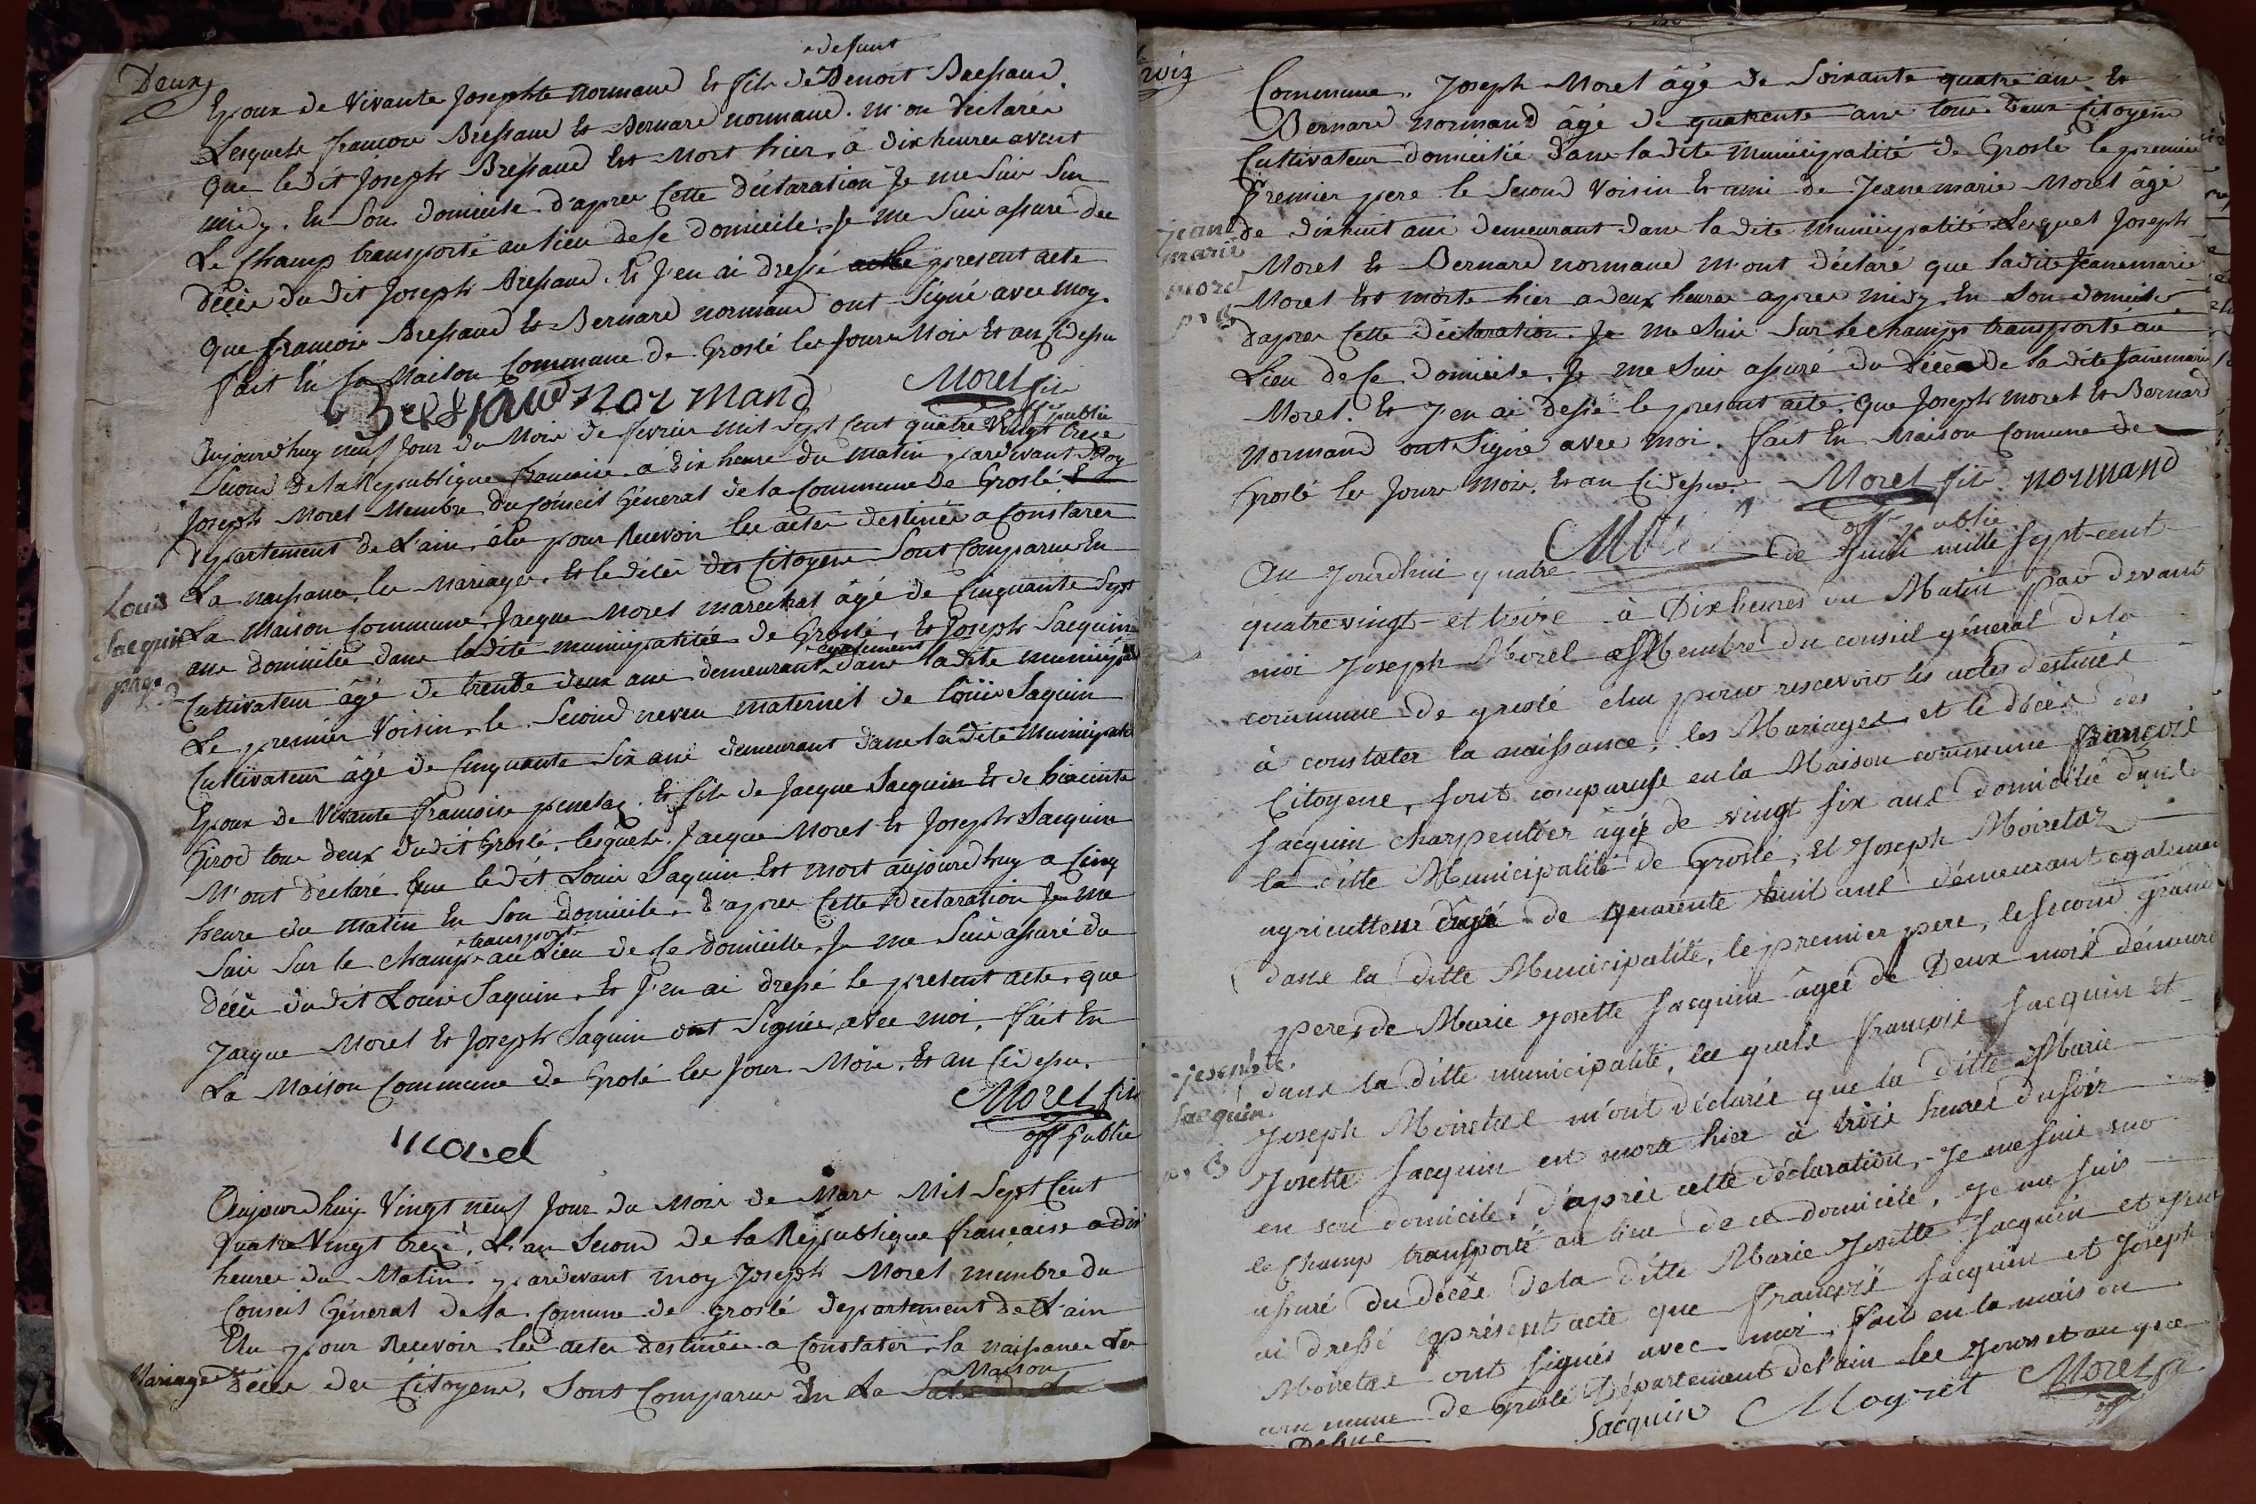 Deux
defunt
Epoux de vivante Josephte normand Et fils de Benoit Bressaud.
Lesquels francois Bressaud Et Bernard normand. m'on déclarés
que ledit Joseph Bressaud Est Mort hier, à dix heures avent
midy. En son domicile. d'apres Cette déclaration Je me suis sur
Le Champ transporté au lieu de ce domicile. Je me suis assuré du
décès dudit Joseph Bressaud. Et J'en ai dressé present acte
que francois Bressaud Et Bernard normand ont signé avec moy.
fait En la Maison Commune de Grosle les Jours Mois Et an Cidessu
Bressaud normand Morel fils
off publie
Aujourdhuy neuf Jour du Mois de fevrier mil sept Cent quatre vingt treze
second de la Republique francaise à dix heure du matin, pardevant Moy
Joseph Morel Membre du Conseil Général de la Commune de Groslé
département de L'ain, élu pour Recevoir les actes destinés a Constater
La naissance, les mariages, Et le décès des Citoyens sont Comparus En
Louis Jacquin
page
La Maison Commune, Jacque Morel marechal âgé de Cinquante Sept
ans domicilié dans ladite municipalitée de Groslé, Et Joseph Jacquin
egalement
Cultivateur âgé de trente deux ans demeurant dans ladite municipalité
Le premier Voisin, le second neveu maternel de Louis Jaquin
Cultivateur âgé de Cinquante Six ans demeurant dans ladite Municipalité
Epoux de Vivante francoise penelas. Et fils de Jacque Jacquin Et de hiacinte
Girod tous deux dudit Groslé, lesquels Jacque Morel Et Joseph Jacquin
M'ont déclaré que ledit Louis Jaquin Est mort aujourdhuy a Cinq
heure du matin En son domicile. d'apres Cette déclaration Je me
transporté
suis sur le champ au Lieu de ce domicille, Je me suis assuré du
décès dudit Louis Jaquin, Et J'en ai dressé le present acte, que
Jacque Morel Et Joseph Jaquin ont Signée avec moi, fait En
La Maison Commune de Grolé les Jour Mois Et an Cidessu.
Morel fils
off publie
morel
Aujourdhuy Vingt neuf Jour du Mois de Mars Mil Sept Cent
quatre Vingt treze, L'an Second de la République francaise a dix
heures du Matin. pardevant moy Joseph Morel membre du
Conseil Général de la Comune de groslé departement de L'ain
Elu pour Recevoir les actes destinés a Constater la naissance Les
Mariages décès des Citoyens, Sont Comparus En La
Maison
Commune. Joseph Morel âgé de Soixante quatre ans Et
Bernard normand âgé de quatrente ans tous deux Citoyens
Cultivateur domicilié dans ladite Municipalité de Groslé le premier
Premier pere le Second Voisin Et ami de Jeanemarie Morel âgé
jean marie morel
de dixhuit ans demeurant dans la dite municipalité Lesquel Joseph
Morel Et Bernard normand m'ont déclaré que ladite Jeanemarie
Morel Est morte hier a deux heures apres midy En Son domicile
dapres Cette déclaration Je me suis Sur le champs transporté au
Lieu de Ce domicile. Je me suis assuré du décès de la dite Janemarie
Morel. Et J'en ai dessé le present acte. que Joseph morel Et Bernard
normand ont Signé avec moi. fait En Maison Comune de
Groslé les Jours mois, Et an Cidessus. Morel fils normand
off publie
Au Jourdhui quatre de Juin mille sept cent
quatrevingt et treize à Dix heures du Matin par devant
moi Joseph Morel Membre du conseil général de la
commune de groslé élu pour rescevoir les actes destinés
à constater la naissance, les Mariages et le décès des
Citoyens, sont comparuse en la Maison commune François
Jacquin charpentier âgé de vingt six ans domicilié dans
la ditte Municipalité de Groslé, et Joseph Moiretaz
agriculteur âgé de quarente huit ans démeurant égalemen
dans la ditte Municipalité, le premier pere, le second grand
peres de Marie Josette Jacquin âgée de Deux mois démeure
josephte Jacquin
dans la ditte municipalité, les quels françois Jacquin et
Joseph Moiretas m'ont déclarés que la ditte Marie
Josette Jacquin est morte hier à trois heures du soir
en son domicile, d'après cette déclaration, Je me suis sur
le Champ transporté au lieu de ce domicile, je me suis
assuré du décès de la ditte Marie Josette Jacquin et j'en
ai dressé présent acte que François Jacquin et Joseph
Moiretas ont signés avec moi, fait en la mais on
commune de Groslé Département de l'ain les Jours et an que
Dessus Jacquin Moyret Morel
off